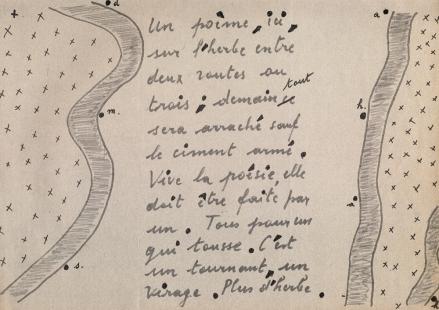 Un poème, ici,
sur l'herbe entre
deux routes ou
trois ; demain tout
sera arraché sauf
le ciment armé.
Vive la poésie, elle
doit être faite par
un. Tous pour un
qui tousse. C'est
un tournant, un
virage. Plus d'herbe.
d
m.
s.
a
h.
s